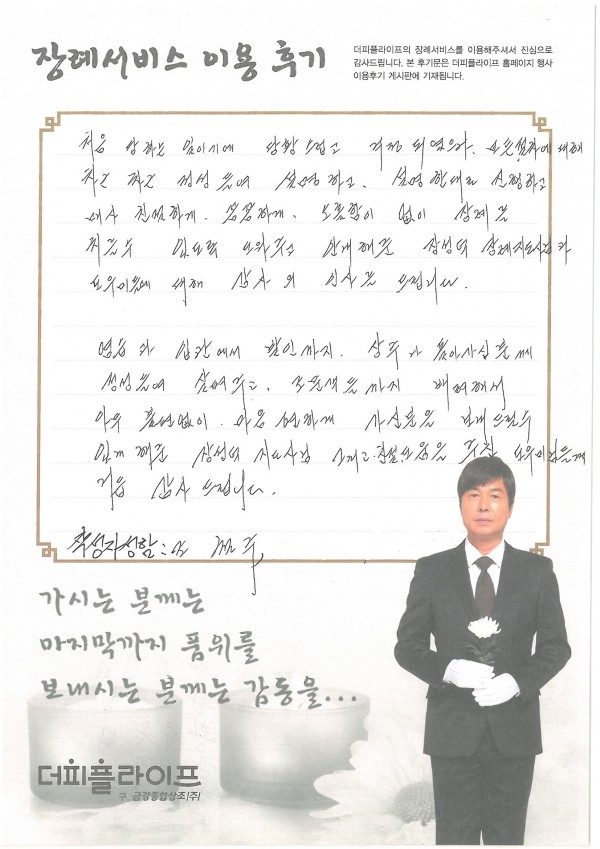 장례서비스 이용 후기
더피플라이프의 장례서비스를 이용해주셔서 진심으로
감사드립니다. 본 후기문은 더피플라이프 홈페이지 행사
이용후기 게시판에 기재됩니다.
처음 당하는 일이기에 당황스럽고 걱정 되였으나, 모든절차에 대해
차근 차근 정성들여 설명하고, 설명한대로 진행하고
매사 친절하게. 꼼꼼하게. 소홀함이 없이 장례를
치를수 있도록 도와주고 안내해준 장례지도사님과
도우미들에 대해 감사의 인사를 드립니다.
염습과 입관에서 발인까지. 상주가 돌아가신분께
정성들여 살펴주고, 조문객들까지 배려해서
아무 불편없이. 마음 편하게 가신분을 보내드릴수
있게 해준 지도사님 그리고 친절한 도움을 주신 도우미님들께
거듭 감사 드립니다.
작성자성함:
가시는 분께는
마지막까지 품위를
보내시는 분께는 감동을...
더피플라이프
구. 금강종합상조(주)